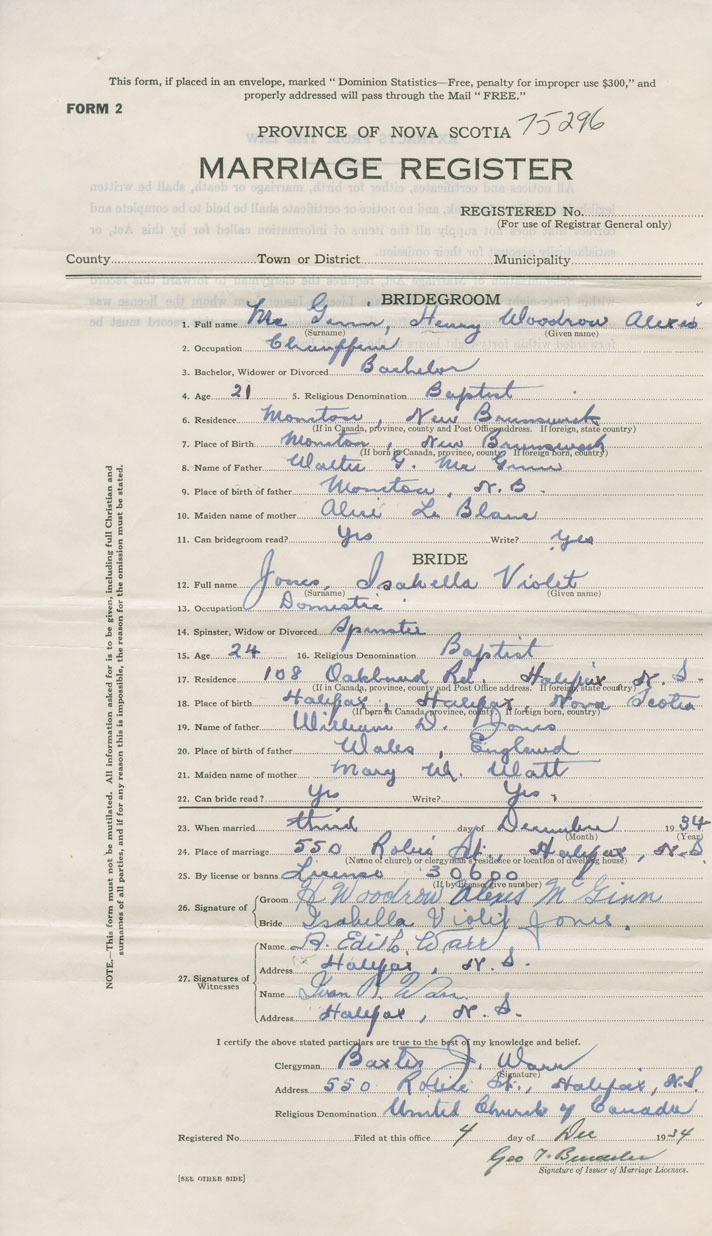 This form, if placed in an envelope, marked " Dominion Statistics—Free, penalty for improper use $300," and
properly addressed will pass through the Mail " FREE."
FORM 2
PROVINCE OF NOVA SCOTIA 75296
MARRIAGE REGISTER
REGISTERED No.
(For use of Registrar General only)
County Town or District Municipality
BRIDEGROOM
1. Full name Mc Ginn, Henry Woodrow Alexis
(Surname) (Given name)
2. Occupation Chauffeur
3. Bachelor, Widower or Divorced Bachelor
4. Age 21 5. Religious Denomination Baptist
6. Residence Moncton, New Brunswick
(If in Canada, province, county and Post Office address. If foreign, state country)
7. Place of Birth Moncton, New Brunswick
(If born in Canada, province, county. If foreign born, country)
8. Name of Father Walter G. Mc Ginn
9. Place of birth of father Moncton, N.B.
10. Maiden name of mother Alice Le Blanc
11. Can bridegroom read? Yes Write? Yes
BRIDE
12. Full name Jones, Isabella Violet
(Surname) (Given name)
13. Occupation Domestic
14. Spinster, Widow or Divorced Spinster
15. Age 24 16. Religious Denomination Baptist
17. Residence 108 Oakland Rd. Halifax N.S.
(If in Canada, province, county and Post Office address. If foreign, state country)
18. Place of birth Halifax, Halifax, Nova Scotia
(If born in Canada, province, county. If foreign born, country)
19. Name of father William D. Jones
20. Place of birth of father Wales, England
21. Maiden name of mother Mary M. Watt
22. Can bride read? Yes Write? Yes,
23. When married third day of December 1934
(Month) (Year)
24. Place of marriage 550 Robie St., Halifax, N.S.
(Name of church or clergyman's residence or location of dwelling house)
25. By license or banns License 30600
(If by license give number)
26. Signature of Groom H. Woodrow Alexis McGinn
Bride Isabella Violet Jones.
27. Signatures of Witnesses
Name A. Edith Warr
Address Halifax, N.S.
Name Warr
Address Halifax, N.S.
I certify the above stated particulars are true to the best of my knowledge and belief.
Clergyman Baxter J. Warr
(Signature)
Address 550 Robie St., Halifax, N.S.
Religious Denomination United Church of Canada
Registered No. Filed at this office 4 day of Dec 1934
Geo
Signature of Issuer of Marriage Licenses.
[SEE OTHER SIDE]
NOTE.—This form must not be mutilated. All information asked for is to be given, including full Christian and
surnames of all parties, and if for any reason this is impossible, the reason for the omission must be stated.